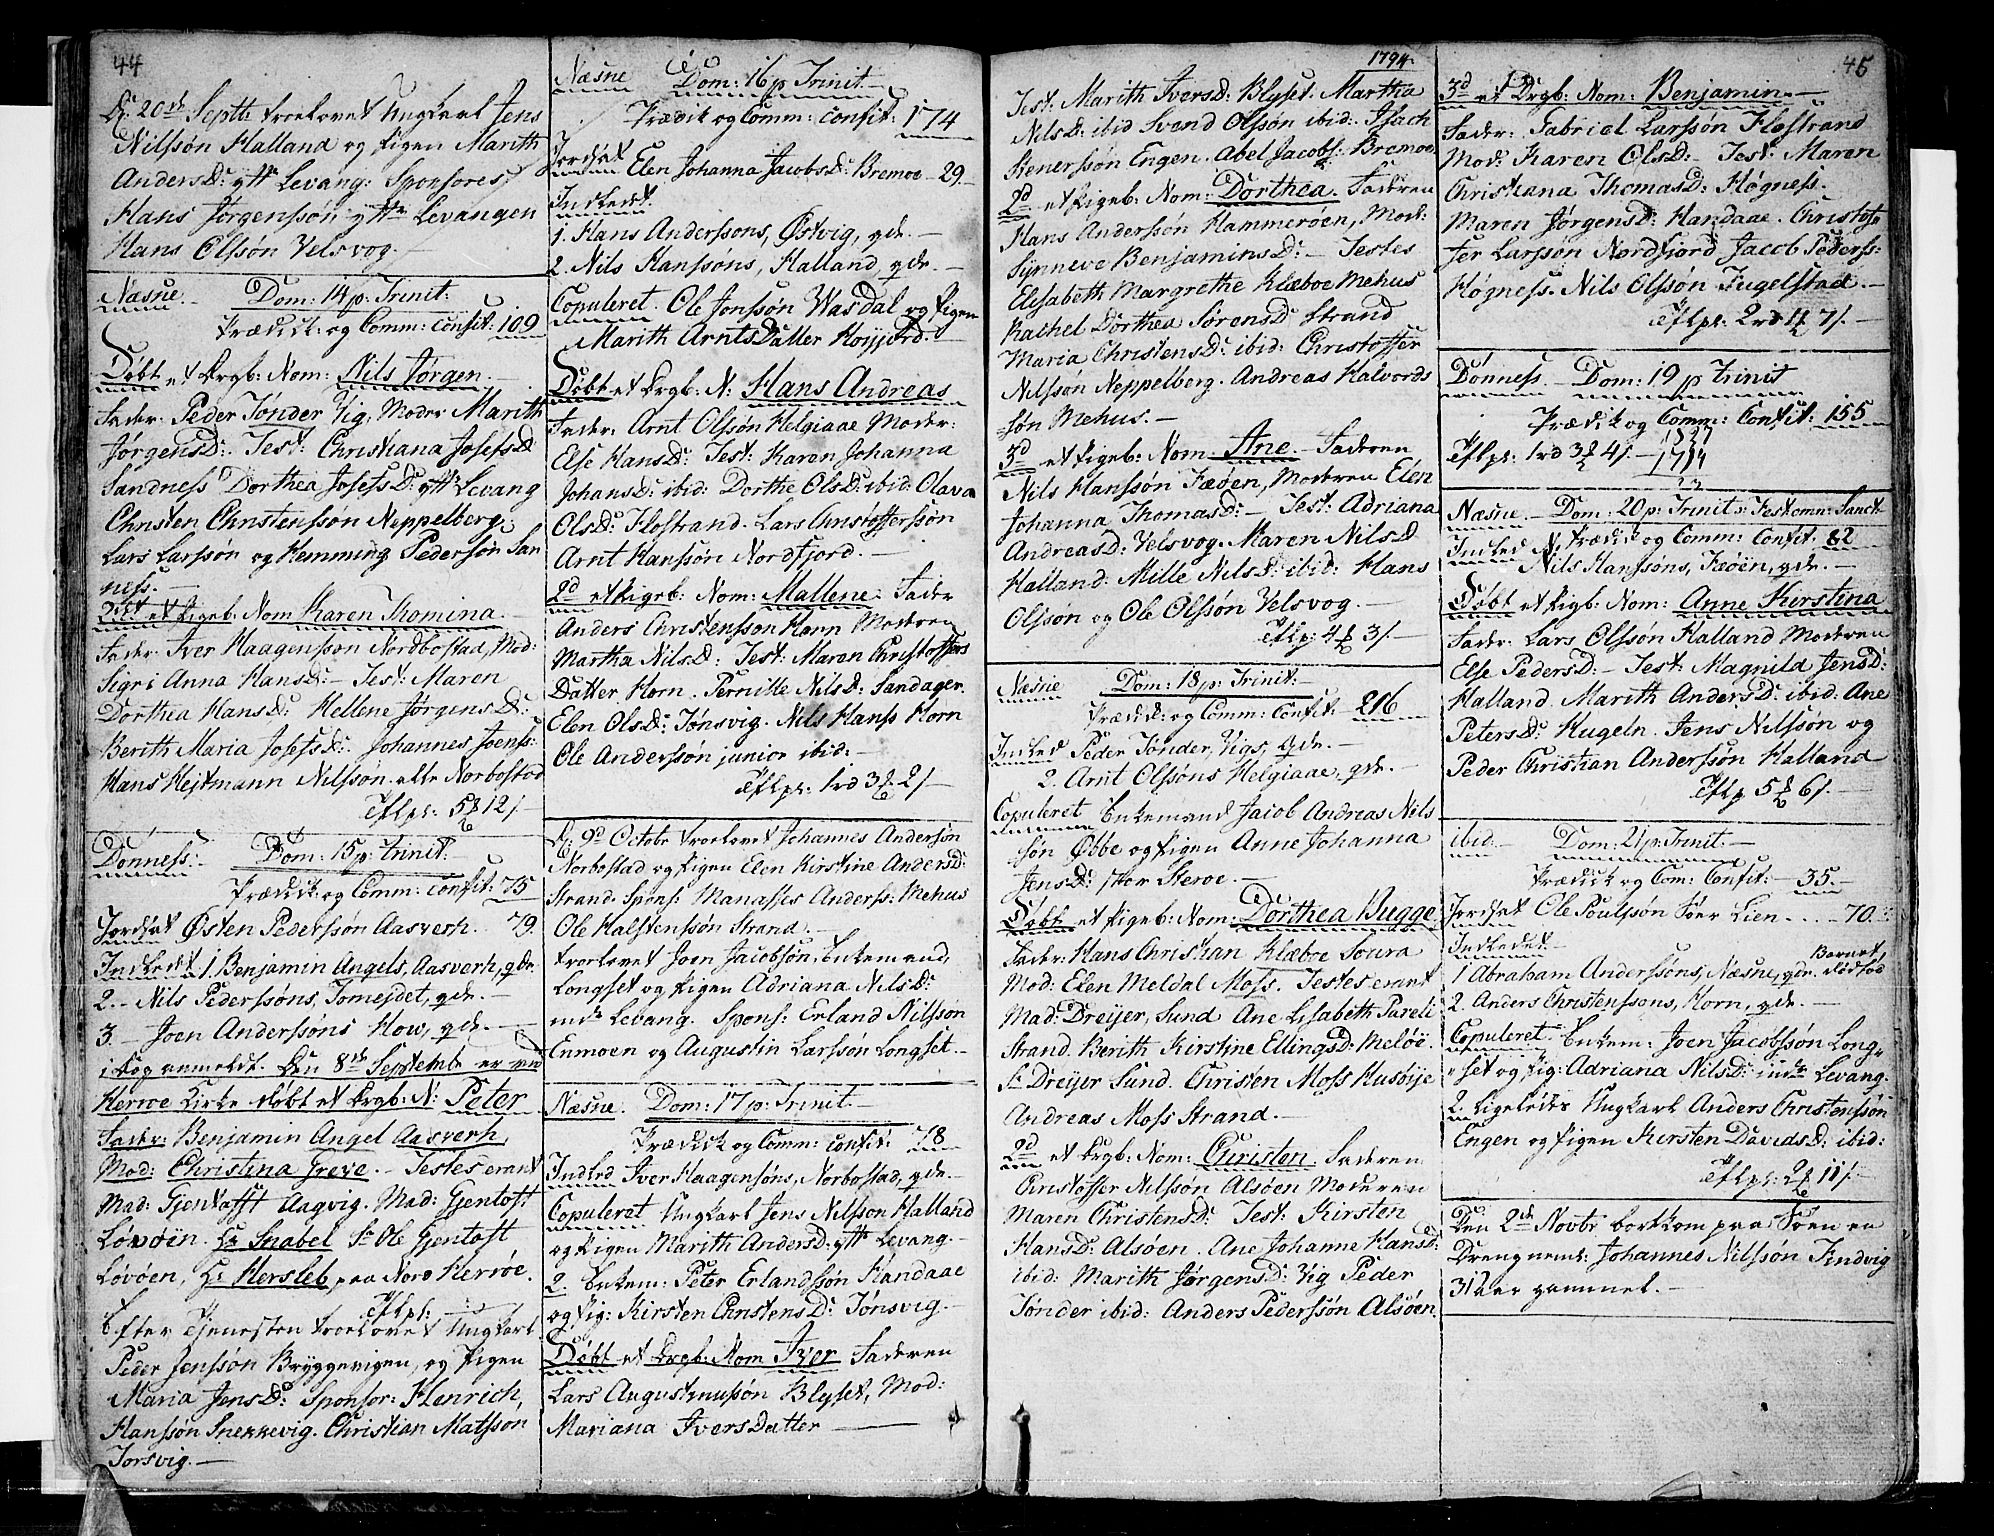 44
D: 20de Septb: troelovet Ungkarl Jens
Nilssön Halland og Pigen Marith
AndersD: yttr Levang: Sponsores
Hans Jörgenssön yttr Levangen
Hans Olssön Velsvog.—
Næsne.— Dom: 14 p: Trinit:
Prædik: og Comm: Confit: 109
Döbt et Drgb: Nom: Nils Jörgen.—
Fader: Peder Tönder Vig, Moder Marith
JörgensD: Test: Christiana JosefsD
Sandness Dorthea JosefsD: yttr Levang
Christen Christenssön Neppelberg
Lars Larssön og Hemming Pederssön San
ness.—
et Pigeb: Nom Karen Thomina.—
Fader: Iver Haagenssön Nordbostad, Mod:
Sigri Anna HansD:— Test: Maren
Dorthea HansD: Hellene JörgensD:
Berith Maria JosefsD: Johannes Joenss:
Hans Hejtmann Nilssön. alle Norbostad
Tflpl: 5 12/.—
Dönness:— Dom: 15 p: Trinit:—
Prædik: og Comm: Confit: 75
Jordfæt Østen Pederssön Aasverh. 79.
Indledt 1. Benjamin Angels, Aasverh, qde.
2.— Nils Pederssöns, Tomejdet, qde.—
3.— Joen Anderssöns How, qde.—
i Dog anmeldt. Den 8de Septemb: er ved
Herroe Kirke döbt et Drgb: N: Peter
Fader: Benjamin Angel Aasverh,
Mod: Christina Greve.— Testes erant
Mad: Gjentofft Aagvig. Mad: Gjentoft
Lövöen. Hr Snabel Sr Ole Gjentoft
Lövöen, Hr Hersleb, paa Nord Herröe.
Tflpl:
Efter Tjenesten troelovet Ungkarl
Peder Jenssön Bryggevigen, og Pigen
Maria JensD: Sponsor: Henrich,
Hanssön Snekkevig. Christian Matssön
Torsvig.—
Næsne Dom: 16 p: Trinit.—
Prædik og Comm: Confit: 174
Jordfæt
Elen Johanna JacobsD: Bremoe—29.—
Indledt
1. Hans Anderssons, Østvig, qde.—
2. Nils Hanssons, Halland, qde.—
Copuleret Ole Jonssön Wasdal og Pigen
Marith ArntsDatter Høyjord.—
Döbt et Drgb: N: Hans Andreas
Fader: Arnt Olssön Helgiaae Moder:
Else HansD: Test: Karen Johanna
JohansD: ibid: Dorthe OlsD: ibid: Olava
OlsD: Flostrand. Lars Christofferssön
Arnt Hanssön Nordfjord.—
2d et Pigeb: Nom: Mallene. Fader
Anders Christenssön Horn Moderen
Martha NilsD: Test: Maren Christoffers
Datter Horn. Pernille NilsD: Sandager
Elen OlsD: Tönsvig. Nils Hanss Horn
Ole Anderssön junior ibid:—
Tflpl: 1rd 3 2/—
D: 9d Octobr troelovet Johannes Anderssön
Norbostad og Pigen Elen Kirstine AndersD:
Strand. Spons: Manasses Anderss: Mehus
Ole Halstenssön Strand.—
troelovet Joen Jacobssön, Enkemand,
Longset og Pigen Adriana NilsD:
indr Levang. Spons: Erland Nilssön
Enmoen og Augustin Larssön Longset.—
Næsne. Dom: 17 p: Trinit.—
Prædik og Comm: Confit: 78
Indled Iver Haagensöns, Norbostad, qde.—
Copuleret Ungkarl Jens Nilssön Halland
og Pigen Marith AndersD: yttr Levang.
2. Enkem: Peter Erlandssön Handaae
og Pig: Kirsten ChristensD: Tönsvig.—
Döbt et Drgb: Nom Iver Faderen
Lars Augustinussön Blyset, Mod:
Mariana IversDatter —
1794.
Test: Marith IversD: Blyset. Martha
NilsD: ibid Svend Olssön ibid: Isach
Renerssön Engen. Abel Jacobs: Bremoe.
2d et Pigeb: Nom: Dorthea. Faderen
Hans Anderssön Hammeröen, Mod:
Synneve BenjaminsD:— Testes
Elisabeth Margrethe Klæboe Mehus
Rachel Dorthea SörensD: Strand
Maria ChristensD: ibid: Christoffer
Nilssön Neppelberg. Andreas Halvords
sön Mehus.—
3d et Pigeb: Nom Ane.— Faderen
Nils Hanssön Fæöen, Moderen Elen
Johanna ThomasD:— Test: Adriana
AndreasD: Velsvog. Maren NilsD
Halland: Mille NilsD: ibid: Hans
Olssön og Ole Olssön Velsvog.—
Tflp: 4 3/.—
Næsne Dom: 18 p: Trinit:—
Prædik: og Comm: Confit: 216
Indled Peder Tönder, Vigs, qde.—
2. Arnt Olssöns Helgiaae, qde.—
Copuleret Enkemand Jacob Andreas Nils
sön Øbbe og Pigen Anne Johanna
JensD: stor Steroe.—
Döbt et Pigeb: Nom: Dorthea Bugge
Fader: Hans Christian Klæboe Soura
Mod: Elen Meldal Moss. Testes erant
Mad: Dreijer, Sund Ane Lisabeth Pareli
Strand. Berith Kirstine EllingsD: Melöe.
Sr Dreijer Sund. Christen Moss Husöije
Andreas Moss Strand.—
2d et Drgb: Nom: Christen. Faderen
Christoffer Nilssön Alsöen Moderen
Maren ChristensD: Test: Kirsten
HansD: Alsöen. Ane Johanne HansD:
ibid: Marith JörgensD: Vig Peder
Tönder ibid: Anders Pederssön Alsöen.
45
3d et Drgb: Nom: Benjamin.—
Fader: Gabriel Larssön Flostrand
Mod: Karen OlsD:— Test: Maren
Christiana ThomasD: Högness.
Maren JörgensD: Handaae. Christof
fer Larssön Nordfjord Jacob Pederss:
Högness. Nils Olssön Fugelstad.—
Tflpl: 2rd 1 7/.—
Dönness.— Dom: 19 p Trinit
Prædik og Comm: Confit: 155
Tflpl: 1rd 3 4/.—
Næsne.— Dom: 20 p: Trinit: Festo omn: Sanct
Indled N: Prædik og Comm: Confit. 82
Nils Hanssöns, Fæöen, qde.—
Döbt et Pigb: Nom: Anne Kirstina
Fader: Lars Olssön Halland Moderen
Else PedersD:— Test: Magnild JensD:
Halland. Marith AndersD: ibid. Ane
PetersD: Hugeln. Jens Nilssön og
Peder Christian Anderssön Halland
Tflp 5 6/.—
ibid.— Dom: 21 p: Trinit.—
Prædik og Com: Confit:—35.—
Jordfæt Ole Poulssön Söer Lien....—70.
Indledet— Barnet
1 Abraham Anderssöns, Næsne, qde. dödföd
2. Anders Christenssons, Horn, qde.—
Copuleret. Enkem: Joen Jacobssön Long
set og Pig: Adriana NilsD: indr Levang.
2. Ligeledes Ungkarl Anders Christenssön
Engen og Pigen Kirsten DavidsD: ibid:
Tflpl: 2 11/.—
Den 2de Novbr bortkom paa Söen en
Dreng neml: Johannes Nilssön Indvig
31 aar gammel.—